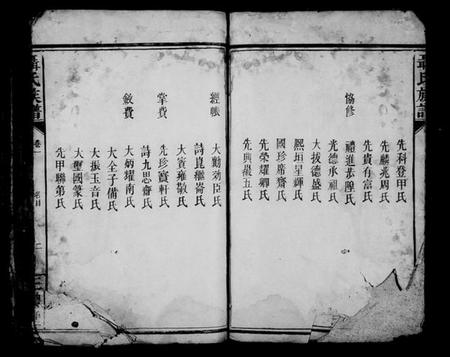 聶氏族譜
先科登甲氏
先麟兆周氏
先貴有富氏
協修
禮進恭陞氏
光德承祖氏
大拔德盛氏
熙垣星輝氏
國珍席齋氏
先榮耀卿氏
先興嚴五氏
經帳
大勳効臣氏
詩崑繼崙氏
大賓雍敬氏
掌費
先珍寶軒氏
詩九思齋氏
斂費
大炳耀南氏
大全子備氏
大振玉音氏
大璽國篆氏
先甲聯第氏
聶氏族譜
卷一
名目
二